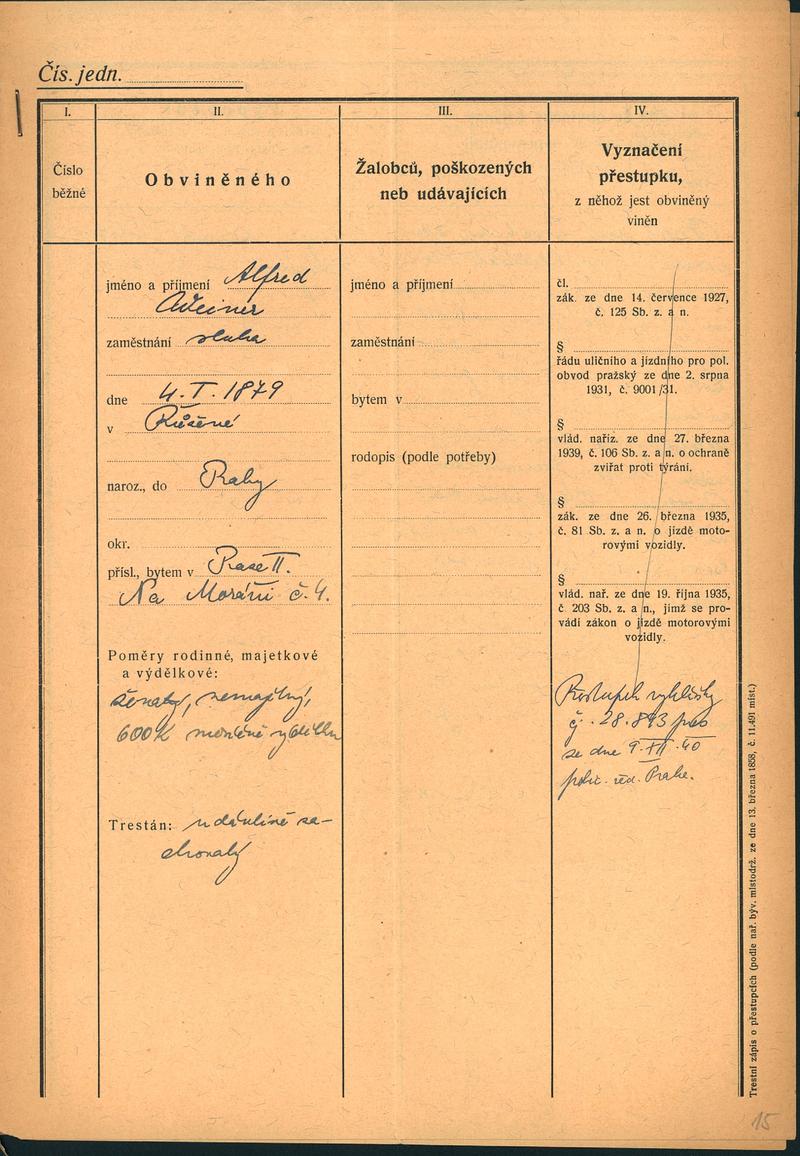 Čís. jedn.
I.
II.
III.
IV.
Číslo
běžné
Obviněného
Žalobců, poškozených
neb udávajících
Vyznačení
přestupku,
z něhož jest obviněný
viněn
jméno a příjmení Alfred
Weiner
zaměstnání sluha
dne 4. I. 1879
v
naroz., do Prahy
okr.
přísl., bytem v Praze II.
Na Moráni č. 4.
Poměry rodinné, majetkové
a výdělkové:
ženatý, nemajetný,
600 K měsíčně výdělku
Trestán: údánlivě za-
chovalý
jméno a příjmení
zaměstnání
bytem v
rodopis (podle potřeby)
čl.
zák. ze dne 14. července 1927,
č. 125 Sb. z. a n.
§
řádu uličního a jízdního pro pol.
obvod pražský ze dne 2. srpna
1931, č. 9001/31.
§
vlád. naříz. ze dne 27. března
1939, č. 106 Sb. z. a n. o ochraně
zvířat proti týrání.
§
zák. ze dne 26. března 1935,
č. 81 Sb. z. a n. o jízdě moto-
rovými vozidly.
§
vlád. nař. ze dne 19. října 1935,
č. 203 Sb. z. a n., jímž se pro-
vádí zákon o jízdě motorovými
vozidly.
Přestupek vyhlášky
čj. 28.893 pres
ze dne 9. XII. 40
polic. řed. Praha.
Trestní zápis o přestupcích (podle nař. býv. místodrž. ze dne 13. března 1858, č. 11.491 míst.)
15